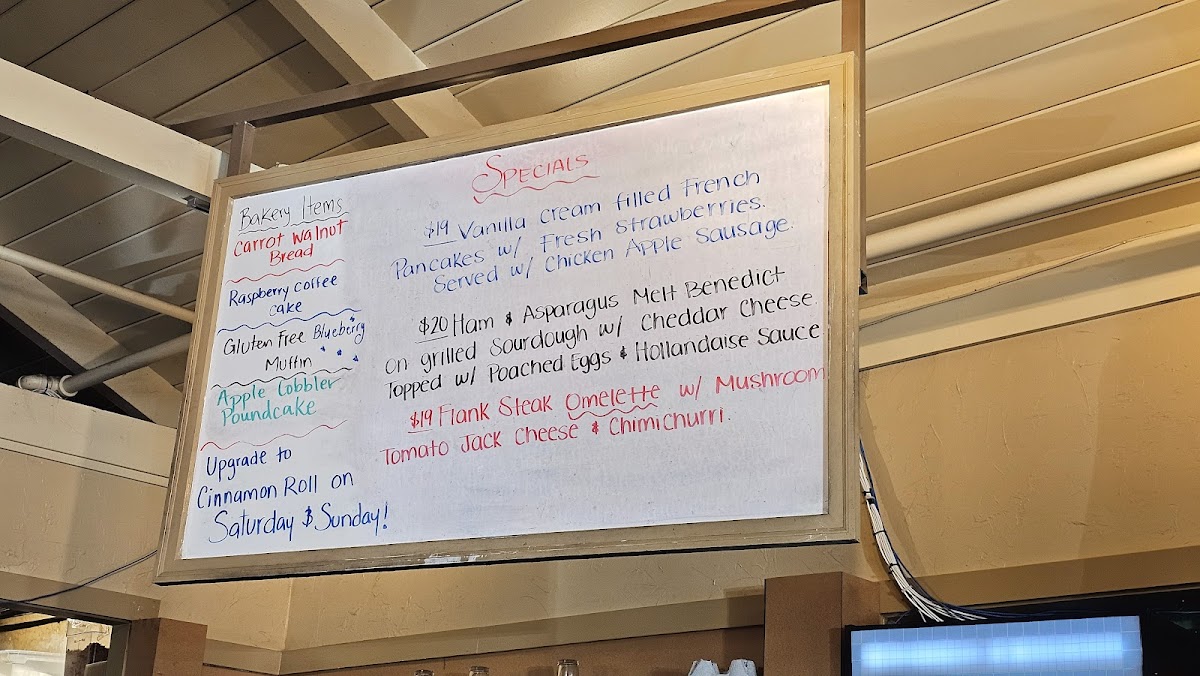 Bakery Items
Carrot Walnut
Bread
Raspberry coffee
cake
Gluten Free Blueberry
Muffin
Apple Cobbler
Poundcake
Upgrade to
Cinnamon Roll on
Saturday & Sunday!
Specials
$19 Vanilla cream filled French
Pancakes w/ Fresh Strawberries.
Served w/ Chicken Apple Sausage.
$20 Ham & Asparagus Melt Benedict
on grilled Sourdough w/ Cheddar Cheese
Topped w/ Poached Eggs & Hollandaise Sauce
$19 Flank Steak Omelette w/ Mushroom
Tomato Jack Cheese & Chimichurri.